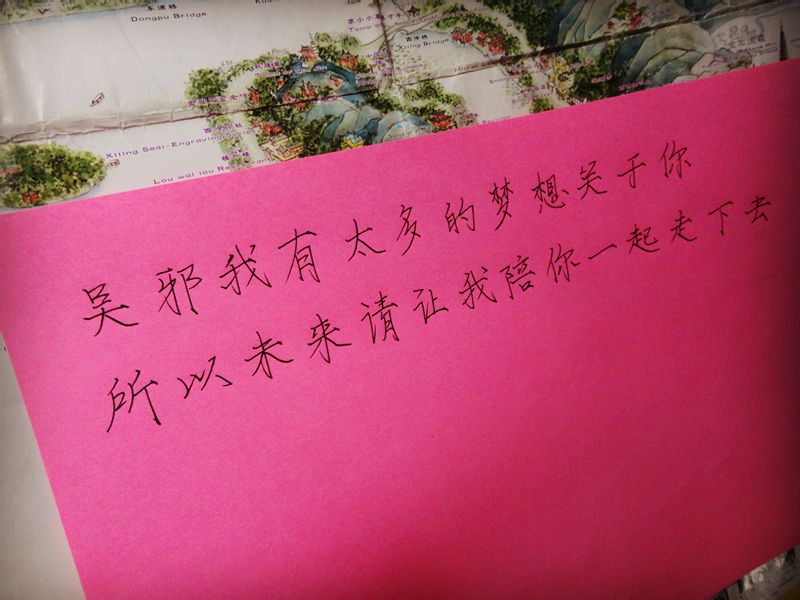 东浦桥
Dongpu Bridge
西泠桥
Xiling Bridge
西泠印社
Xiling Seal-Engraving Society
楼外楼
Lou wai lou Restaurant
吴邪我有太多的梦想关于你
所以未来请让我陪你一起走下去